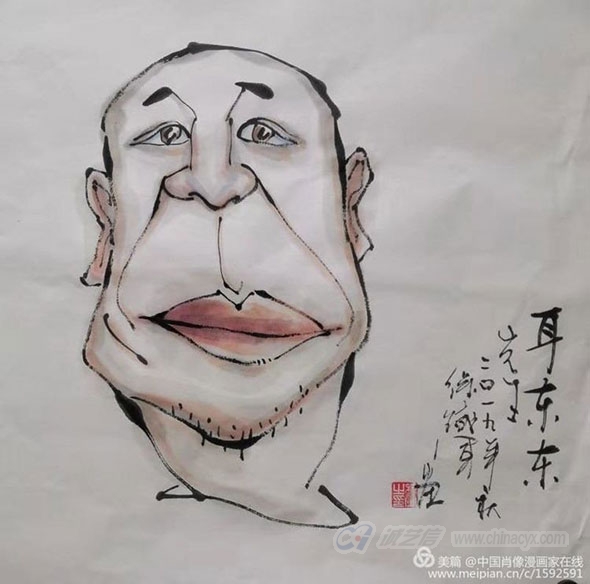 耳东东
先生
二〇一九年秋
中艺信 www.chinacyx.com
美篇 @中国肖像漫画家在线
www.meipian.cn/c/1592591